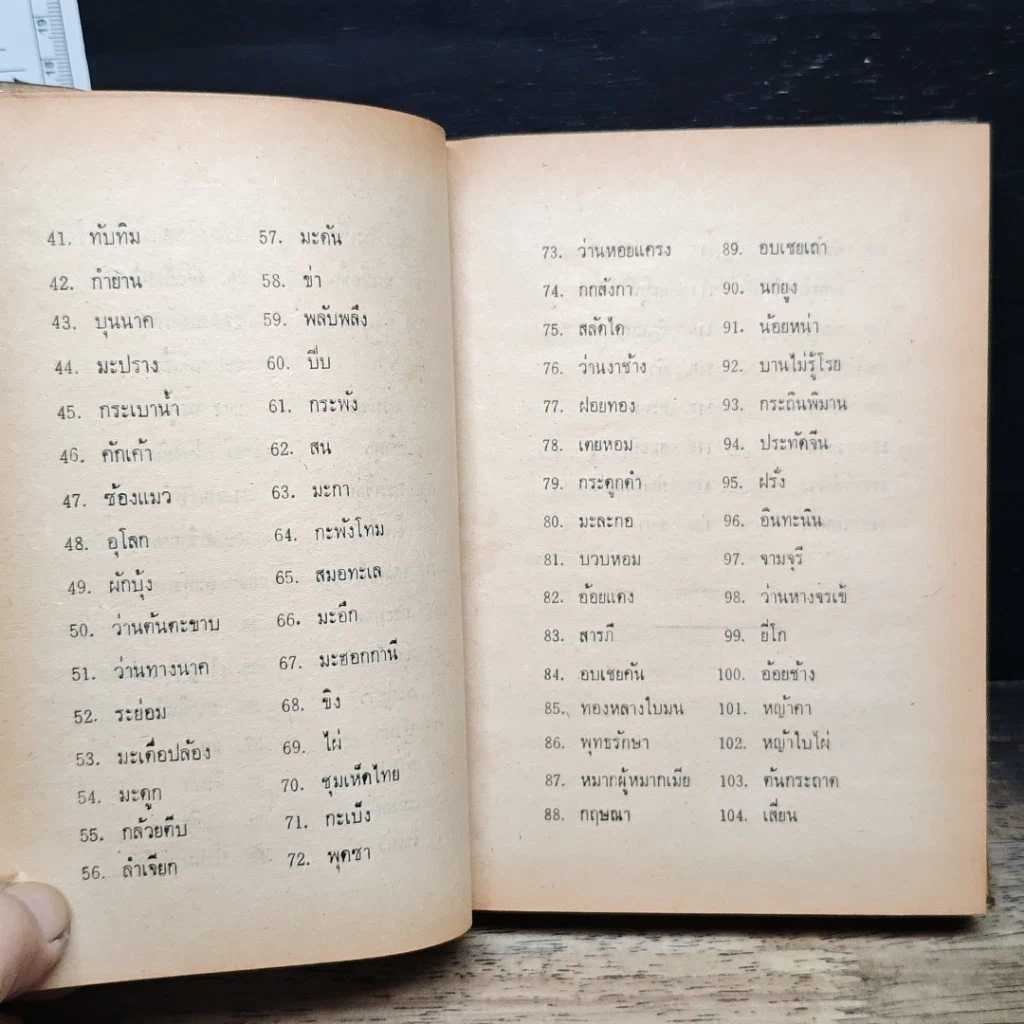 19
18
41. ทับทิม
42. กำยาน
43. บุนนาค
44. มะปราง
45. กระเบาน้ำ
46. คัดเค้า
47. ช้องแมว
48. อุโลก
49. ผักบุ้ง
50. ว่านต้นตะขาบ
51. ว่านทางนาค
52. ระย่อม
53. มะเดื่อปล้อง
54. มะดูก
55. กล้วยตีบ
56. ลำเจียก
57. มะดัน
58. ข่า
59. พลับพลึง
60. ปีบ
61. กระพัง
62. สน
63. มะกา
64. กะพังโหม
65. สมอทะเล
66. มะอึก
67. มะฮอกกานี
68. ขิง
69. ไผ่
70. ชุมเห็ดไทย
71. กะเบ็ง
72. พุดซา
73. ว่านหอยแครง
74. กกลังกา
75. สลัดได
76. ว่านงาช้าง
77. ฝอยทอง
78. เตยหอม
79. กระดูกดำ
80. มะละกอ
81. บวบหอม
82. อ้อยแดง
83. สารภี
84. อบเชยต้น
85. ทองหลางใบมน
86. พุทธรักษา
87. หมากผู้หมากเมีย
88. กฤษณา
89. อบเชยเถา
90. นกยูง
91. น้อยหน่า
92. บานไม่รู้โรย
93. กระถินพิมาน
94. ประทัดจีน
95. ฝรั่ง
96. อินทะนิน
97. จามจุรี
98. ว่านหางจรเข้
99. ยี่โถ
100. อ้อยช้าง
101. หญ้าคา
102. หญ้าใบไผ่
103. ต้นกระถาด
104. เลี่ยน